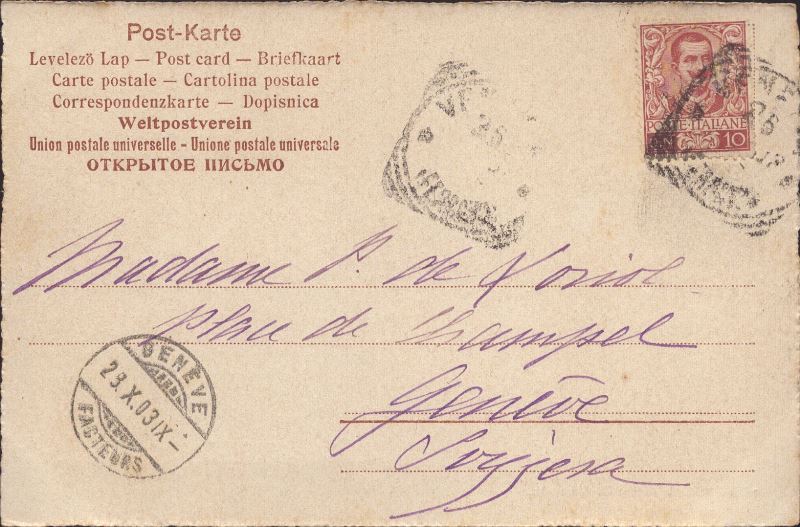 Post-Karte
Levelező Lap — Post card — Briefkaart
Carte postale — Cartolina postale
Correspondenzkarte — Dopisnica
Weltpostverein
Union postale universelle - Unione postale universale
ОТКРЫТОЕ ПИСЬМО
POSTE ITALIANE
10
Madame P. de Loriol
Place de Champel
Genève
Svizzera
GENÈVE
28.X.03 IX-
FACTEURS